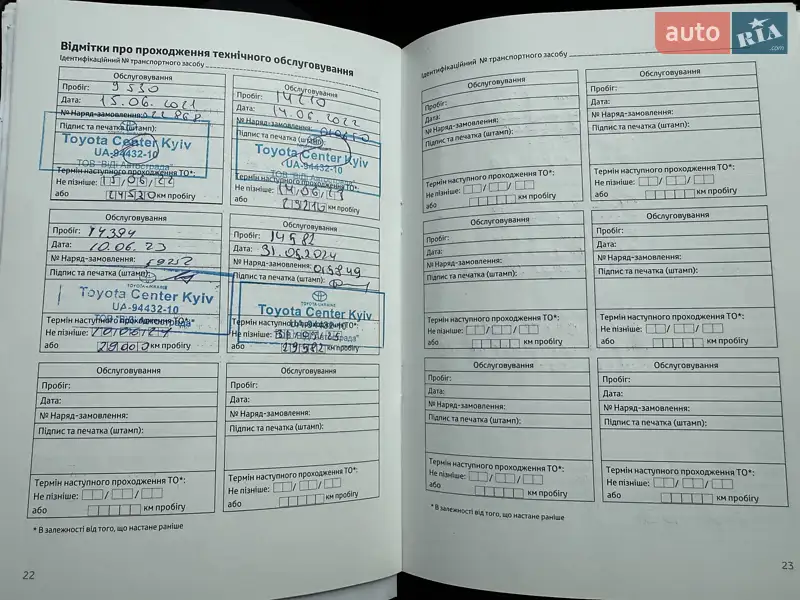 auto RIA.com
Відмітки про проходження технічного обслуговування
Ідентифікаційний № транспортного засобу
Обслуговування
Пробіг: 9 530
Дата: 15.06.2021
№ Наряд-замовлення:
Підпис та печатка (штамп):
Toyota Center Kyiv
UA-94432-10
ТОВ "ВіДі Автострада"
Термін наступного проходження ТО*:
Не пізніше: 15/06/22
або 24520 км пробігу
Обслуговування
Пробіг: 14210
Дата: 14.06.2022
№ Наряд-замовлення:
Підпис та печатка (штамп):
Toyota Center Kyiv
UA-94432-10
ТОВ "ВіДі Автострада"
Термін наступного проходження ТО*:
Не пізніше: 14/06/23
або 29210 км пробігу
Обслуговування
Пробіг: 14394
Дата: 10.06.23
№ Наряд-замовлення:
Підпис та печатка (штамп):
TOYOTA UKRAINE
Toyota Center Kyiv
UA-94432-10
Термін наступного проходження ТО*:
Не пізніше: 10/06/24
або км пробігу
Обслуговування
Пробіг: 14582
Дата: 31.05.2024
№ Наряд-замовлення: 015849
Підпис та печатка (штамп):
TOYOTA UKRAINE
Toyota Center Kyiv
UA-94432-10
Термін наступного проходження ТО*:
Не пізніше: 31/05/25
або 29582 км пробігу
Обслуговування
Пробіг:
Дата:
№ Наряд-замовлення:
Підпис та печатка (штамп):
Термін наступного проходження ТО*:
Не пізніше: / /
або км пробігу
Обслуговування
Пробіг:
Дата:
№ Наряд-замовлення:
Підпис та печатка (штамп):
Термін наступного проходження ТО*:
Не пізніше: / /
або км пробігу
* В залежності від того, що настане раніше
22
Ідентифікаційний № транспортного засобу
Обслуговування
Пробіг:
Дата:
№ Наряд-замовлення:
Підпис та печатка (штамп):
Термін наступного проходження ТО*:
Не пізніше: / /
або км пробігу
Обслуговування
Пробіг:
Дата:
№ Наряд-замовлення:
Підпис та печатка (штамп):
Термін наступного проходження ТО*:
Не пізніше: / /
або км пробігу
Обслуговування
Пробіг:
Дата:
№ Наряд-замовлення:
Підпис та печатка (штамп):
Термін наступного проходження ТО*:
Не пізніше: / /
або км пробігу
Обслуговування
Пробіг:
Дата:
№ Наряд-замовлення:
Підпис та печатка (штамп):
Термін наступного проходження ТО*:
Не пізніше: / /
або км пробігу
Обслуговування
Пробіг:
Дата:
№ Наряд-замовлення:
Підпис та печатка (штамп):
Термін наступного проходження ТО*:
Не пізніше: / /
або км пробігу
Обслуговування
Пробіг:
Дата:
№ Наряд-замовлення:
Підпис та печатка (штамп):
Термін наступного проходження ТО*:
Не пізніше: / /
або км пробігу
* В залежності від того, що настане раніше
23